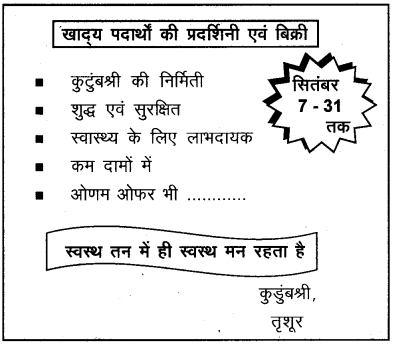 खाद्य पदार्थों की प्रदर्शिनी एवं बिक्री
कुटुंबश्री की निर्मिती
शुद्ध एवं सुरक्षित
स्वास्थ्य के लिए लाभदायक
कम दामों में
ओणम ओफर भी ............
सितंबर
7 - 31
तक
स्वस्थ तन में ही स्वस्थ मन रहता है
कुडुंबश्री,
तृशूर